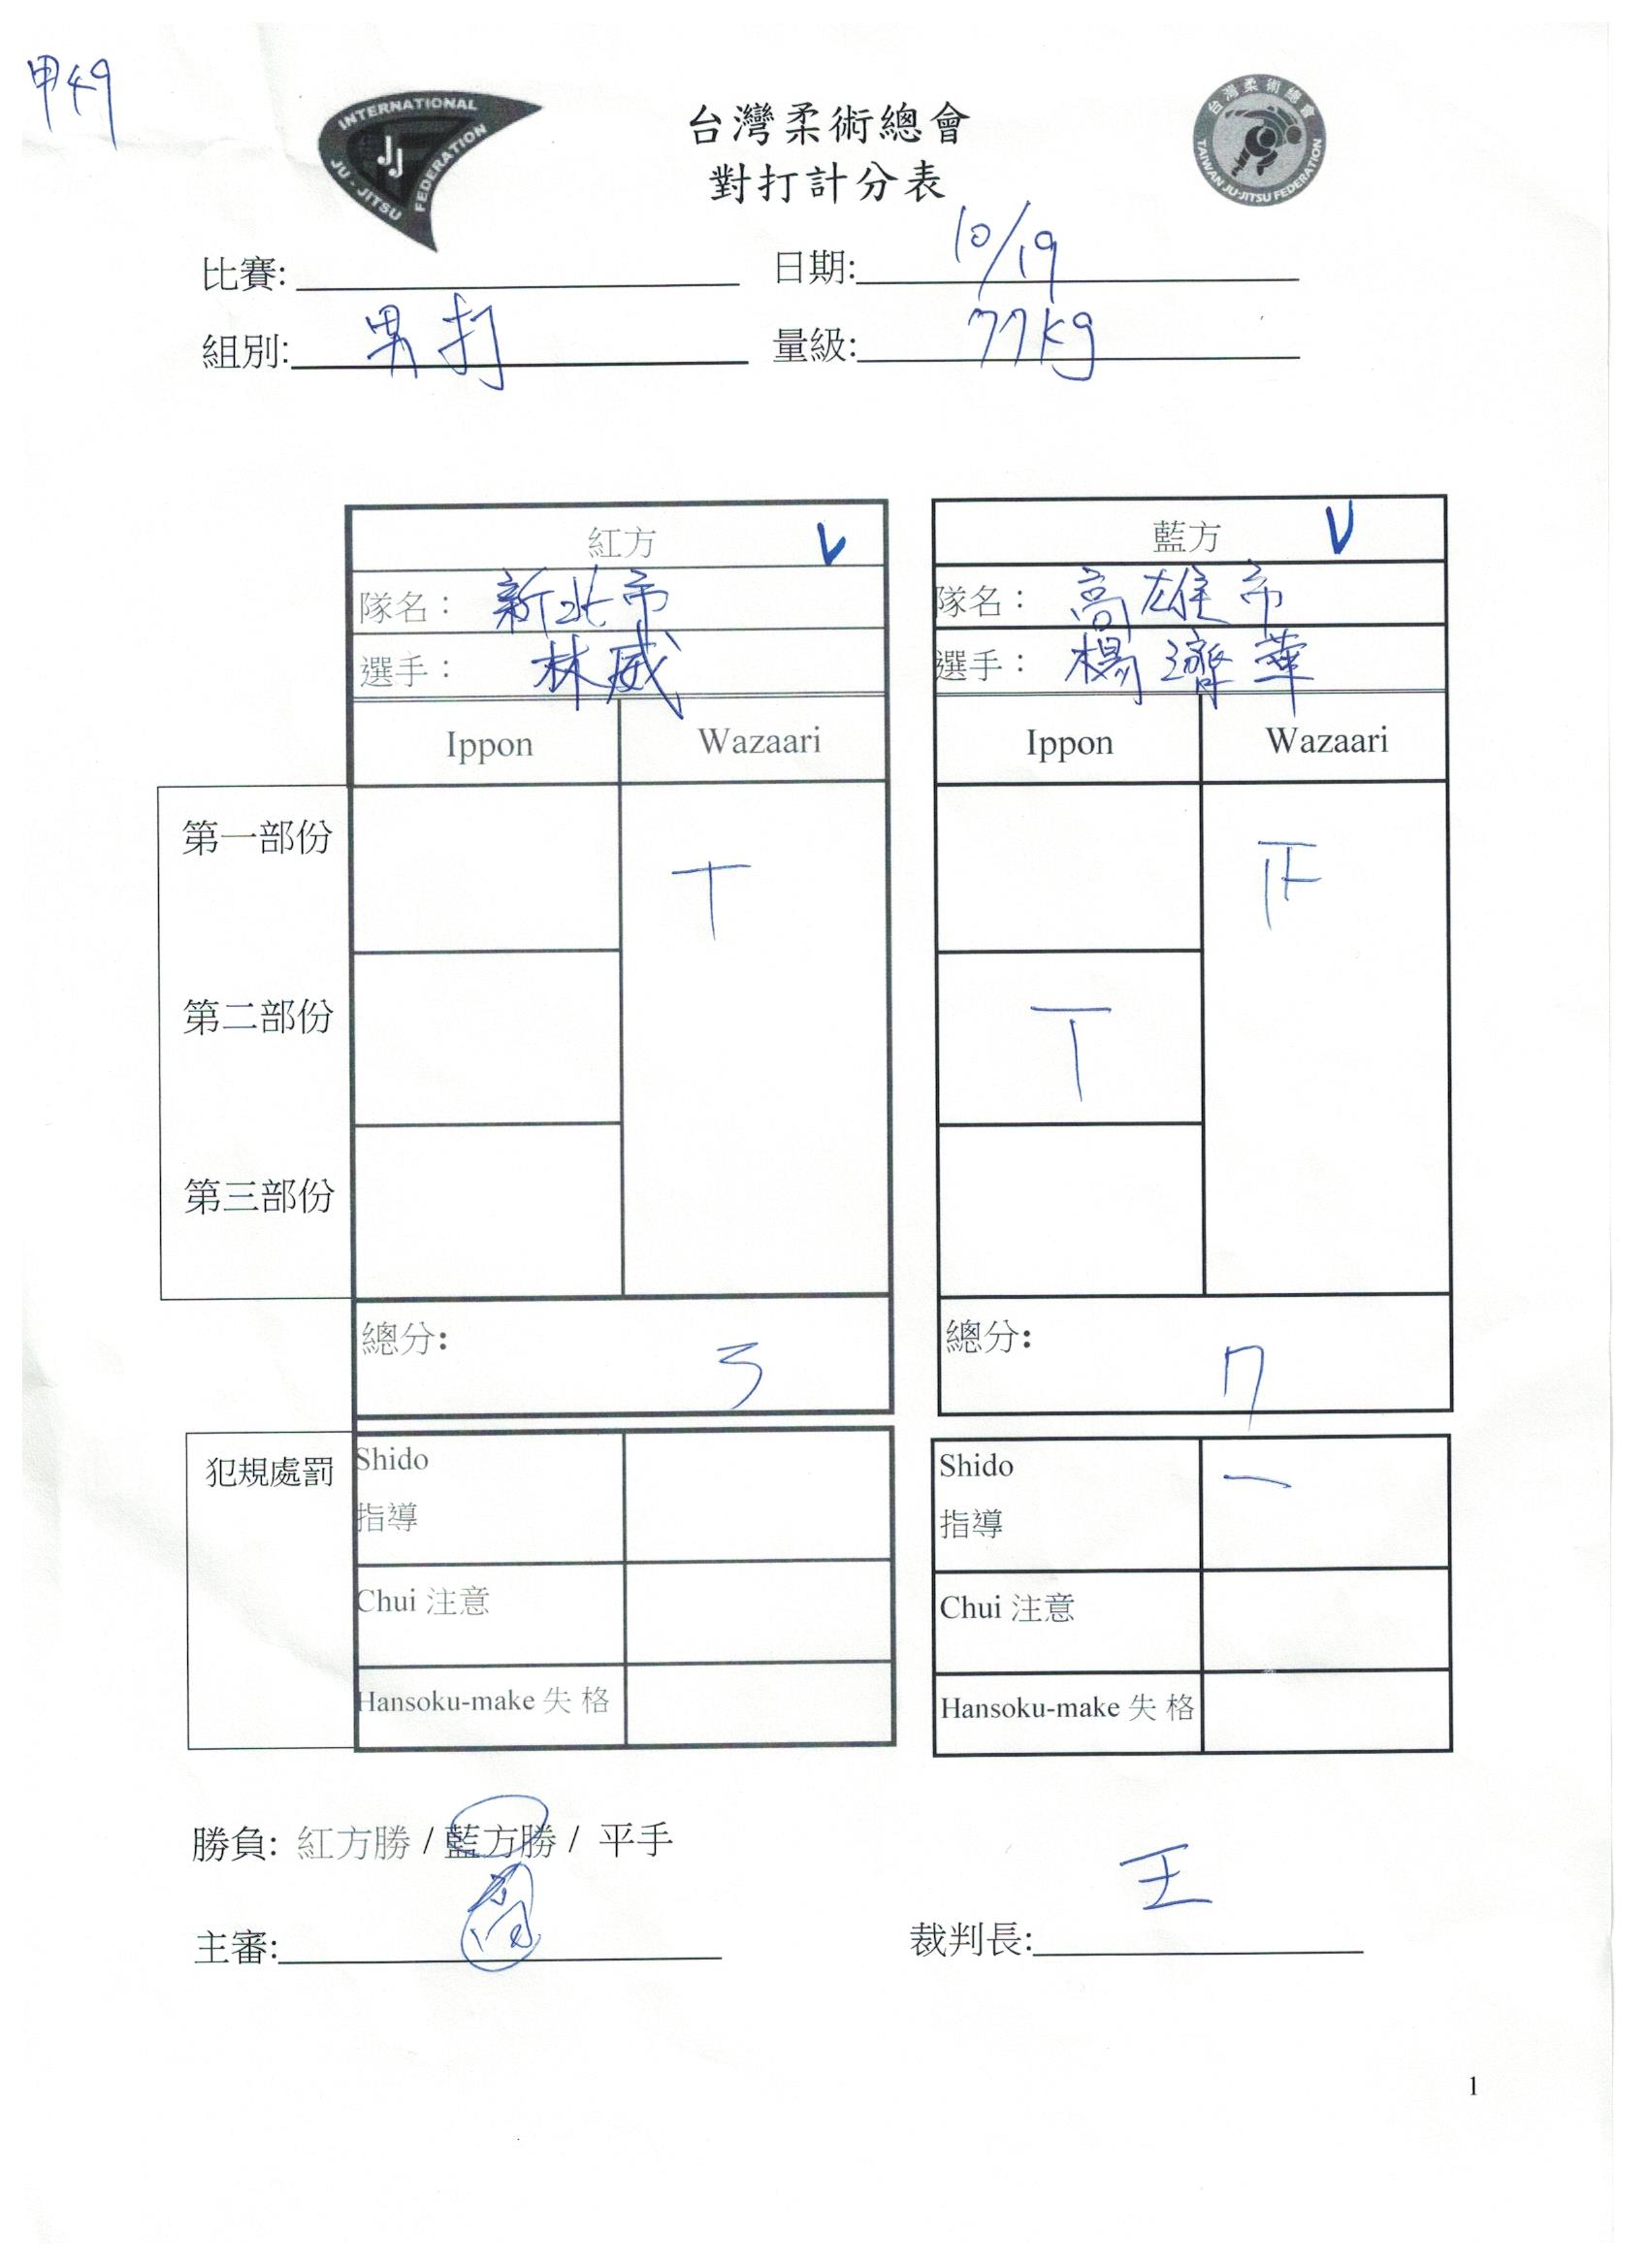 甲49
INTERNATIONAL
JJ
JU-JITSU FEDERATION
台灣柔術總會
對打計分表
台灣柔術總會
TAIWAN JU-JITSU FEDERATION
比賽: 日期: 10/19
組別: 男打 量級: 77kg
紅方 V 藍方 V
隊名: 新北市 隊名: 高雄市
選手: 林威 選手: 楊濟華
Ippon Wazaari Ippon Wazaari
第一部份 T 正
第二部份 T
第三部份
總分: 3 總分: 7
犯規處罰 Shido Shido 一
指導 指導
Chui 注意 Chui 注意
Hansoku-make 失 格 Hansoku-make 失 格
勝負: 紅方勝 / 藍方勝 / 平手
主審: 裁判長: 王
1